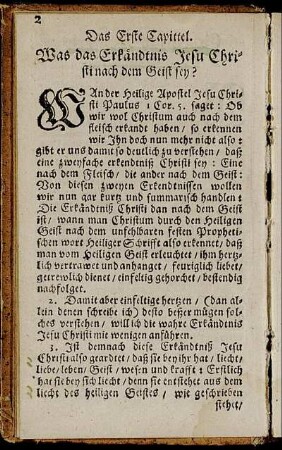 2
Das Erste Capittel.
Was das Erkändtnis Jesu Chri-
sti nach dem Geist sey?
WAn der Heilige Apostel Jesu Chri-
sti Paulus 1 Cor. 5. saget: Ob
wir wol Christum auch nach dem
fleisch erkandt haben / so erkennen
wir Ihn doch nun mehr nicht also:
gibt er uns damit so deutlich zu verstehen / daß
eine zweyfache erkendtniß Christi sey: Eine
nach dem Fleisch / die ander nach dem Geist:
Von diesen zweyen Erkendtnissen wollen
wir nun gar kurtz und summarisch handlen:
Die Erkändtniß Christi dan nach dem Geist
ist / wann man Christum durch den Heiligen
Geist nach dem unfehlbaren festen Propheti-
schen wort Heiliger Schrifft also erkennet / daß
man vom Heiligen Geist erleuchtet / ihm hertz-
lich vertrawet und anhanget / feuriglich liebet /
getrewlich dienet / einfeltig gehorchet / bestendig
nachfolget.
2. Damit aber einfeltige hertzen / (dan al-
lein denen schreibe ich) desto besser mügen sol-
ches verstehen / will ich die wahre Erkändtnis
Jesu Christi mit wenigen anführen.
3. Ist demnach diese Erkändtniß Jesu
Christi also geardtet / daß sie bey ihr hat / liecht /
liebe / leben / Geist / wesen und krafft: Erstlich
hat sie bey sich liecht / denn sie entstehet aus dem
liecht des heiligen Geistes / wie geschrieben
stehet /